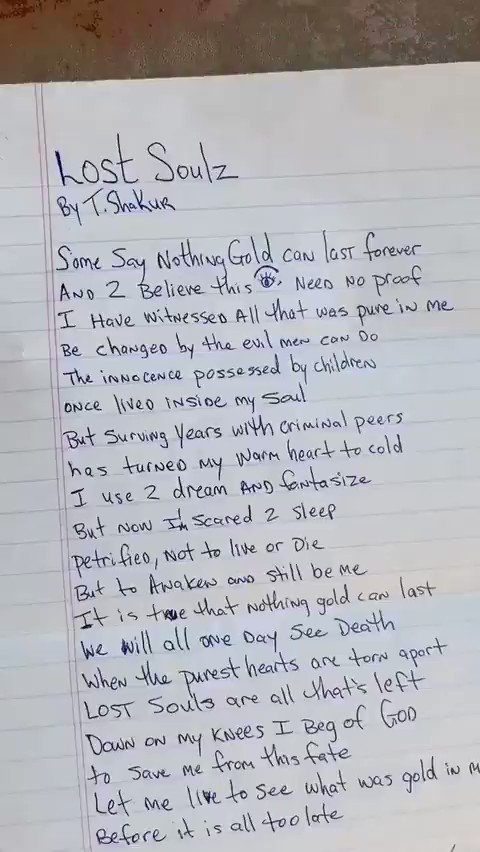 Lost Soulz
By T. Shakur
Some Say Nothing Gold can last forever
AND 2 Believe this 👁 Need No proof
I Have witnessed All that was pure in me
Be changed by the evil men can Do
The innocence possessed by children
once lived inside my soul
But surving years with criminal peers
has turned my warm heart to cold
I use 2 dream AND fantasize
But now I'm scared 2 sleep
petrified, not to live or Die
But to Awaken and still be me
It is true that nothing gold can last
We will all one Day see Death
When the purest hearts are torn apart
LOST Souls are all that's left
Down on my knees I Beg of GOD
to save me from this fate
Let me live to see what was gold in
Before it is all too late